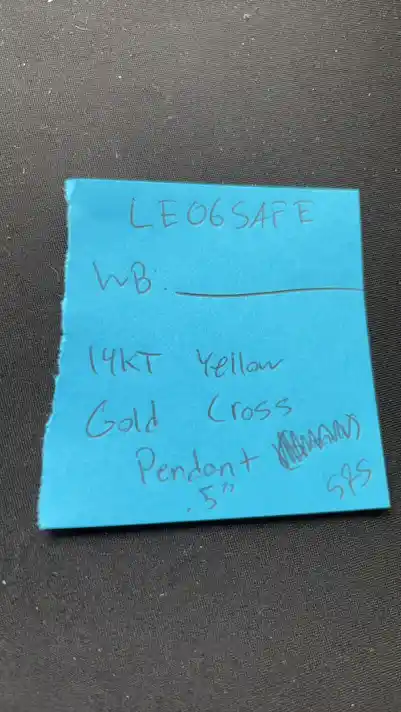 LE06SAFE
WB:
14KT Yellow
Gold Cross
Pendant
.5"